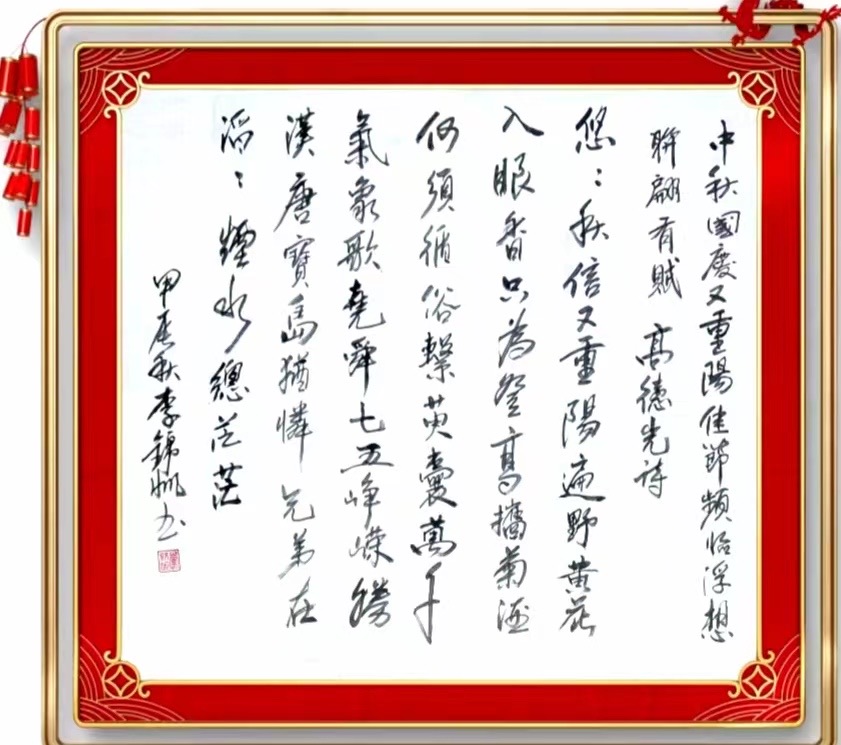 中秋國慶又重陽佳節頻臨浮想
聨翩有賦 高德光詩
悠：秋信又重陽遍野黄花
入眼香只為登高攜菊酒
何須循俗繫萸囊萬千
氣象歌堯舜七五崢嶸勝
漢唐寶島猶憐兄弟在
滔：煙水總茫茫
甲辰秋李錦帆书